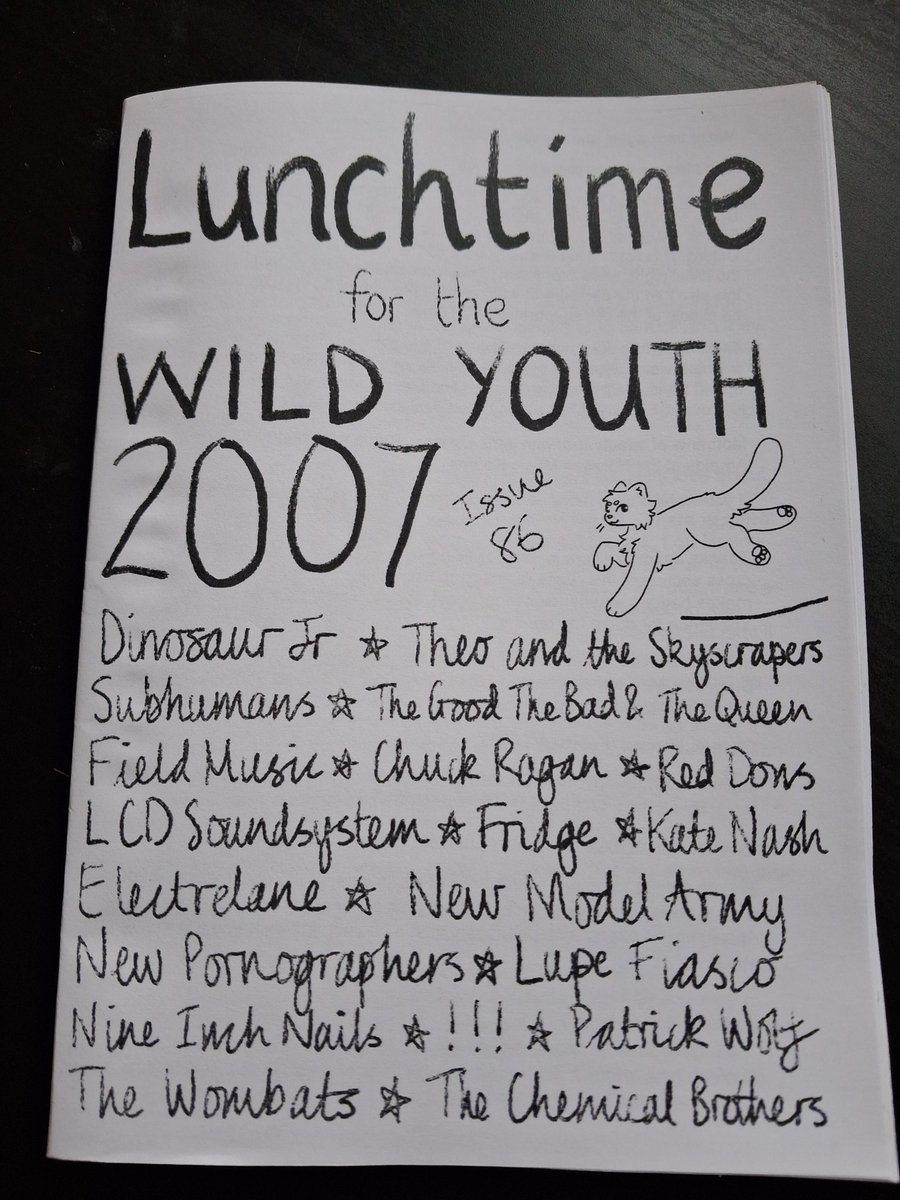 Lunchtime
for the
WILD YOUTH
2007
Issue
86
Dinosaur Jr ☆ Theo and the Skyscrapers
Subhumans ☆ The Good The Bad & The Queen
Field Music ☆ Chuck Ragan ☆ Red Dons
LCD Soundsystem ☆ Fridge ☆ Kate Nash
Electrelane ☆ New Model Army
New Pornographers ☆ Lupe Fiasco
Nine Inch Nails ☆ !!! ☆ Patrick Wolf
The Wombats ☆ The Chemical Brothers